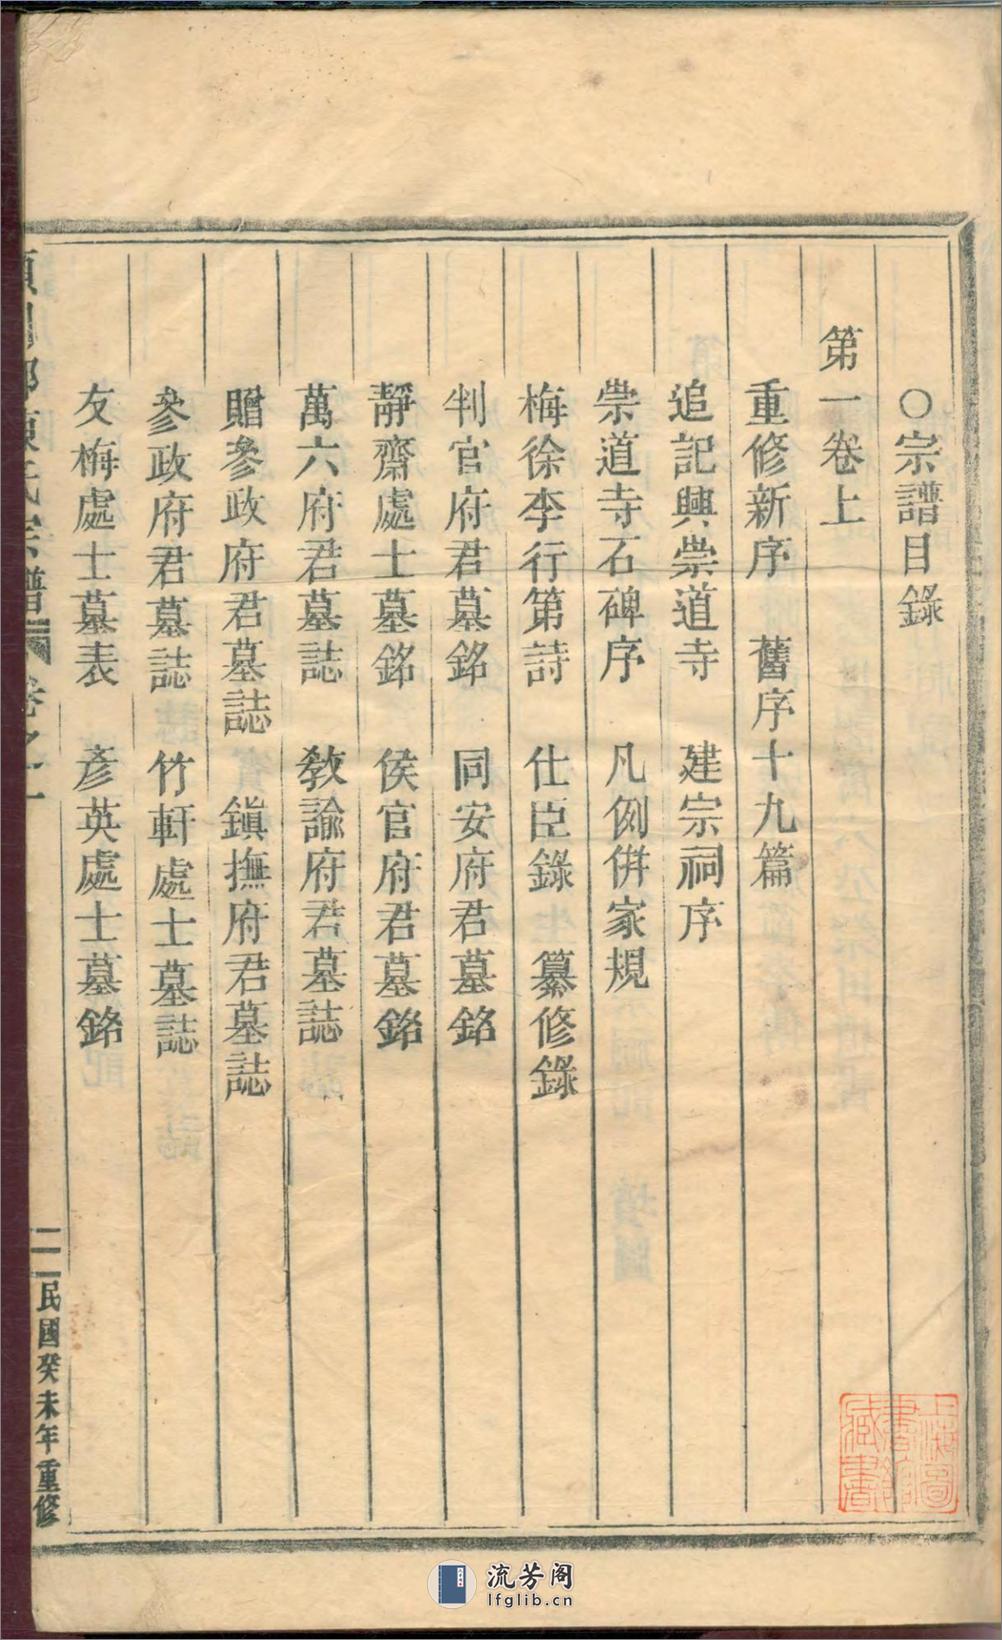 ○宗譜目錄
第一卷上
重修新序　舊序十九篇
追記興崇道寺　建宗祠序
崇道寺石碑序　凡例併家規
梅徐李行第詩　仕臣錄　纂修錄
判官府君墓銘　同安府君墓銘
靜齋處士墓銘　侯官府君墓銘
萬六府君墓誌　教諭府君墓誌
贈參政府君墓誌　鎮撫府君墓誌
參政府君墓誌　竹軒處士墓誌
友梅處士墓表　彥英處士墓銘
陳氏宗譜　卷之一
民國癸未年重修
上海圖書館藏書
流芳阁
lfglib.cn